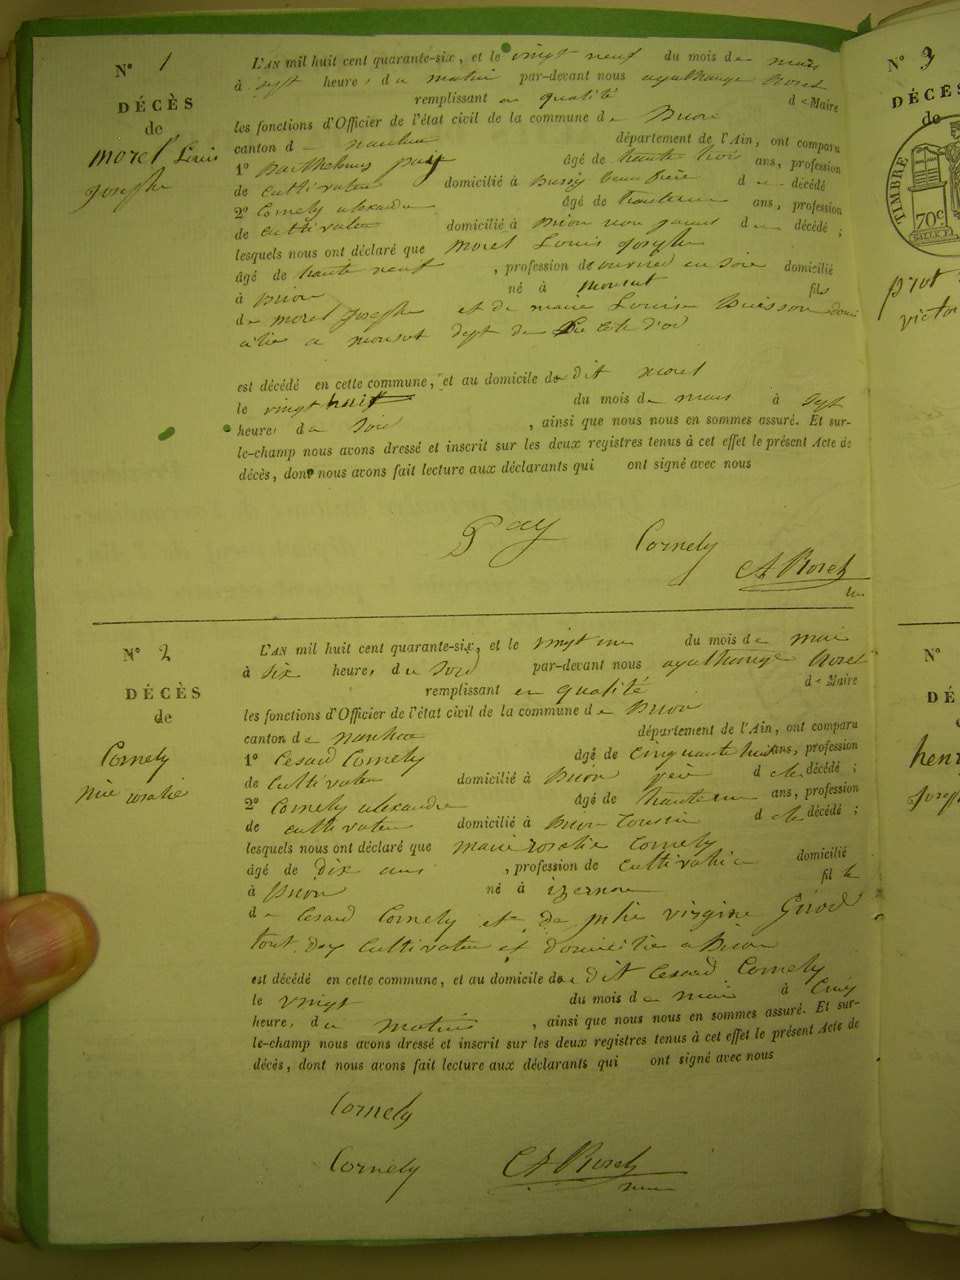 N° 1
DÉCÈS
de
morel Louis
Josephe
L'AN mil huit cent quarante-six, et le vingt neuf du mois de mars
à sept heures du matin par-devant nous agathange Borel
remplissant en qualité de Maire
les fonctions d'Officier de l'état civil de la commune de Brion
canton de nantua département de l'Ain, ont comparu
1° Barthelemy pay âgé de trante trois ans, profession
de cultivateur domicilié à Bussy beau frère du décédé
2° Cornely alexandre âgé de trante un ans, profession
de cultivateur domicilié à Brion non parent du décédé ;
lesquels nous ont déclaré que Morel Louis Josephe
âgé de trante neuf , profession de ouvrier en soie domicilié
à Brion né à fils
de morel Josephe et de marie Louise Buisson domi
cilie a dept de La Cote d'or
est décédé en cette commune, et au domicile de dit morel
le vingt huit du mois de mars à sept
heures du soir , ainsi que nous nous en sommes assuré. Et sur-
le-champ nous avons dressé et inscrit sur les deux registres tenus à cet effet le présent Acte de
décès, dont nous avons fait lecture aux déclarants qui ont signé avec nous
Pay Cornely
A Borel
N° 2
DÉCÈS
de
Cornely
rosalie
L'AN mil huit cent quarante-six, et le vingt un du mois de mai
à six heures du soir par-devant nous agathange Borel
remplissant en qualité de Maire
les fonctions d'Officier de l'état civil de la commune de Brion
canton de nantua département de l'Ain, ont comparu
1° Cesard Cornely âgé de cinquante huit ans, profession
de cultivateur domicilié à Brion père de la décédé ;
2° Cornely alexandre âgé de trante un ans, profession
de cultivateur domicilié à Brion cousin de la décédé ;
lesquels nous ont déclaré que marie rosalie Cornely
âgé de dix ans , profession de cultivatrice domicilié
à Brion né à izernore fille
de Cesard Cornely et de julie virgine Girod
tout dex cultivateur et domicilie a Brion
est décédé en cette commune, et au domicile de dit Cesard Cornely
le vingt du mois de mai à cinq
heures du matin , ainsi que nous nous en sommes assuré. Et sur-
le-champ nous avons dressé et inscrit sur les deux registres tenus à cet effet le présent Acte de
décès, dont nous avons fait lecture aux déclarants qui ont signé avec nous
Cornely
Cornely A Borel
N° 3
DÉCÈS
de
TIMBRE
70c
prot
victor
N°
DÉ
henri
Joseph